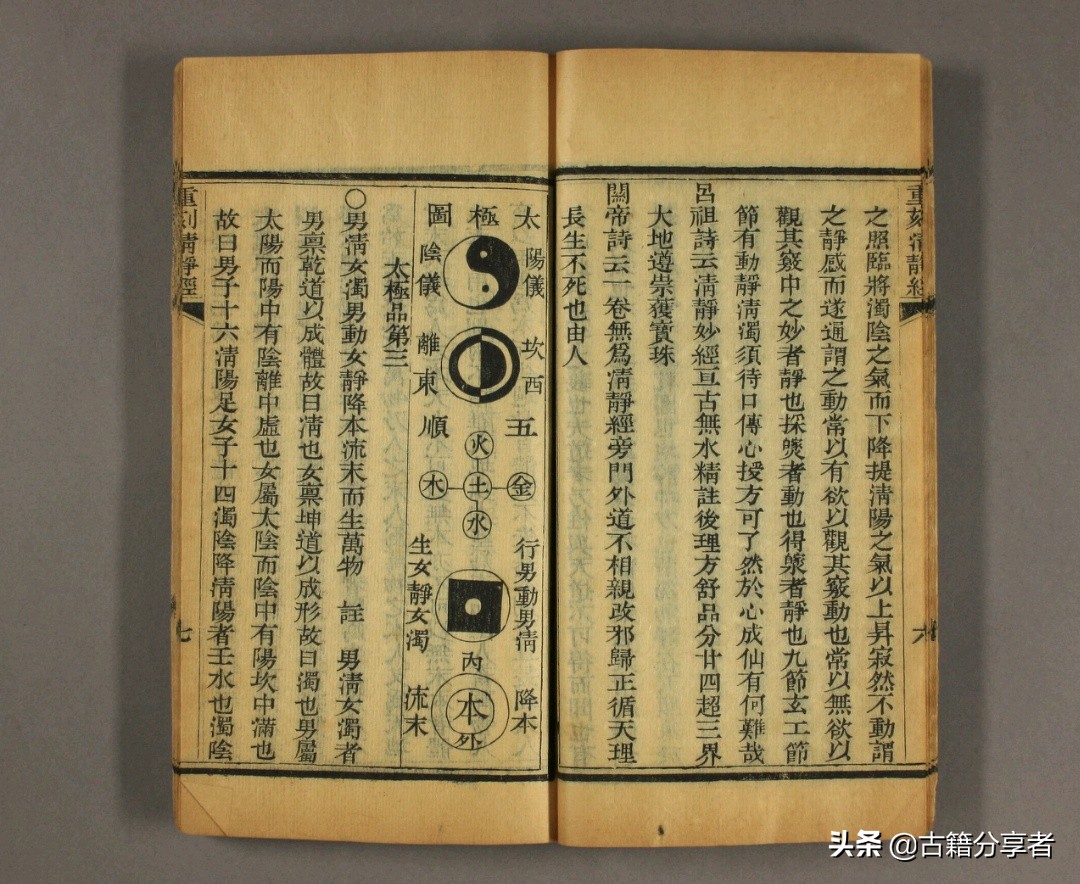 重刻清靜經
之照臨將濁陰之氣而下降提清陽之氣以上昇寂然不動謂
之靜感而遂通謂之動常以有欲以觀其竅動也常以無欲以
觀其竅中之妙者靜也採𤇆者動也得𤇆者靜也九節玄工節
節有動靜清濁須待口傳心授方可了然於心成仙有何難哉
呂祖詩云清靜妙經亘古無水精註後理方舒品分廿四超三界
大地遵崇獲寶珠
關帝詩云一卷無爲清靜經旁門外道不相親改邪歸正循天理
長生不死也由人
六
太極圖
陽儀
陰儀
坎西
離東
五
順
火
金
土
木
水
行男動男清
生女靜女濁
丙
降本
流末
本
外
太極品第三
○男清女濁男動女靜降本流末而生萬物 註 男清女濁者
男禀乾道以成體故曰清也女禀坤道以成形故曰濁也男屬
太陽而陽中有陰離中虛也女屬太陰而陰中有陽坎中滿也
故曰男子十六清陽足女子十四濁陰降清陽者壬水也濁陰
重刻清靜經
七
头条 @古籍分享者